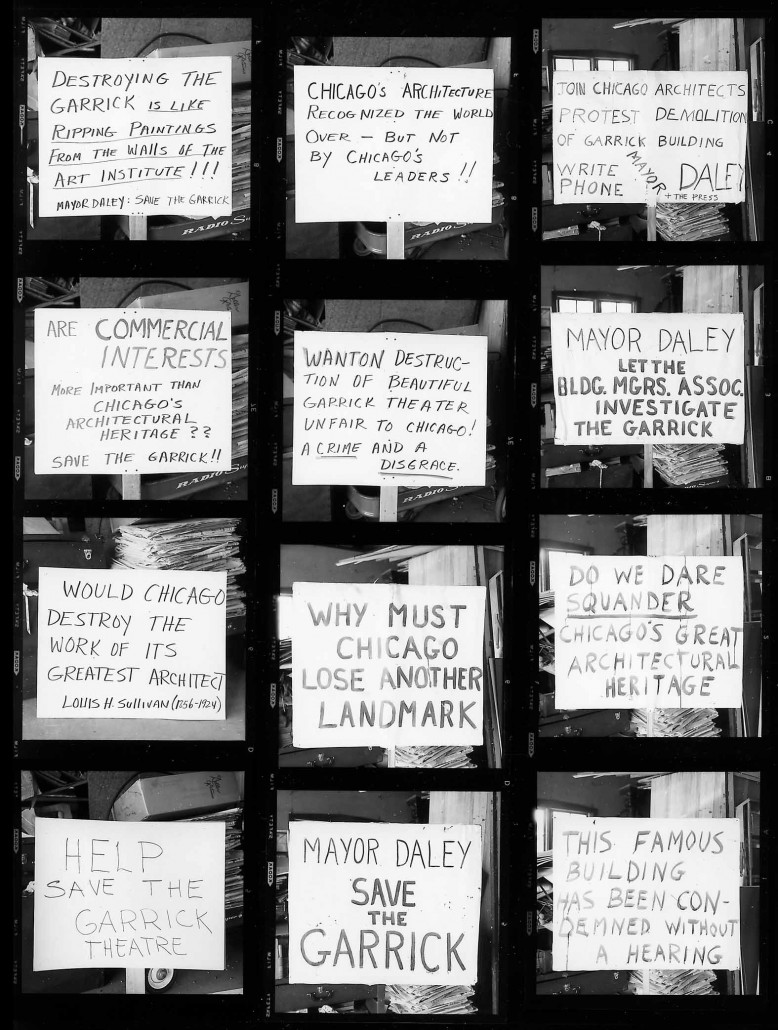 DESTROYING THE
GARRICK IS LIKE
RIPPING PAINTINGS
FROM THE WALLS OF THE
ART INSTITUTE!!!
MAYOR DALEY: SAVE THE GARRICK
RADIO
CHICAGO'S ARCHITECTURE
RECOGNIZED THE WORLD
OVER — BUT NOT
BY CHICAGO'S
LEADERS!!
RADIO S
JOIN CHICAGO ARCHITECTS
PROTEST DEMOLITION
OF GARRICK BUILDING
WRITE
PHONE
MAYOR
DALEY
+ THE PRESS
ARE COMMERCIAL
INTERESTS
MORE IMPORTANT THAN
CHICAGO'S
ARCHITECTURAL
HERITAGE??
SAVE THE GARRICK!!
RADIO S
WANTON DESTRUC-
TION OF BEAUTIFUL
GARRICK THEATER
UNFAIR TO CHICAGO!
A CRIME AND A
DISGRACE.
RADIO S
MAYOR DALEY
LET THE
BLDG. MGRS. ASSOC.
INVESTIGATE
THE GARRICK
WOULD CHICAGO
DESTROY THE
WORK OF ITS
GREATEST ARCHITECT
LOUIS H. SULLIVAN (1856-1924)
WHY MUST
CHICAGO
LOSE ANOTHER
LANDMARK
DO WE DARE
SQUANDER
CHICAGO'S GREAT
ARCHITECTURAL
HERITAGE
HELP
SAVE THE
GARRICK
THEATRE
MAYOR DALEY
SAVE
THE
GARRICK
THIS FAMOUS
BUILDING
HAS BEEN CON-
DEMNED WITHOUT
A HEARING